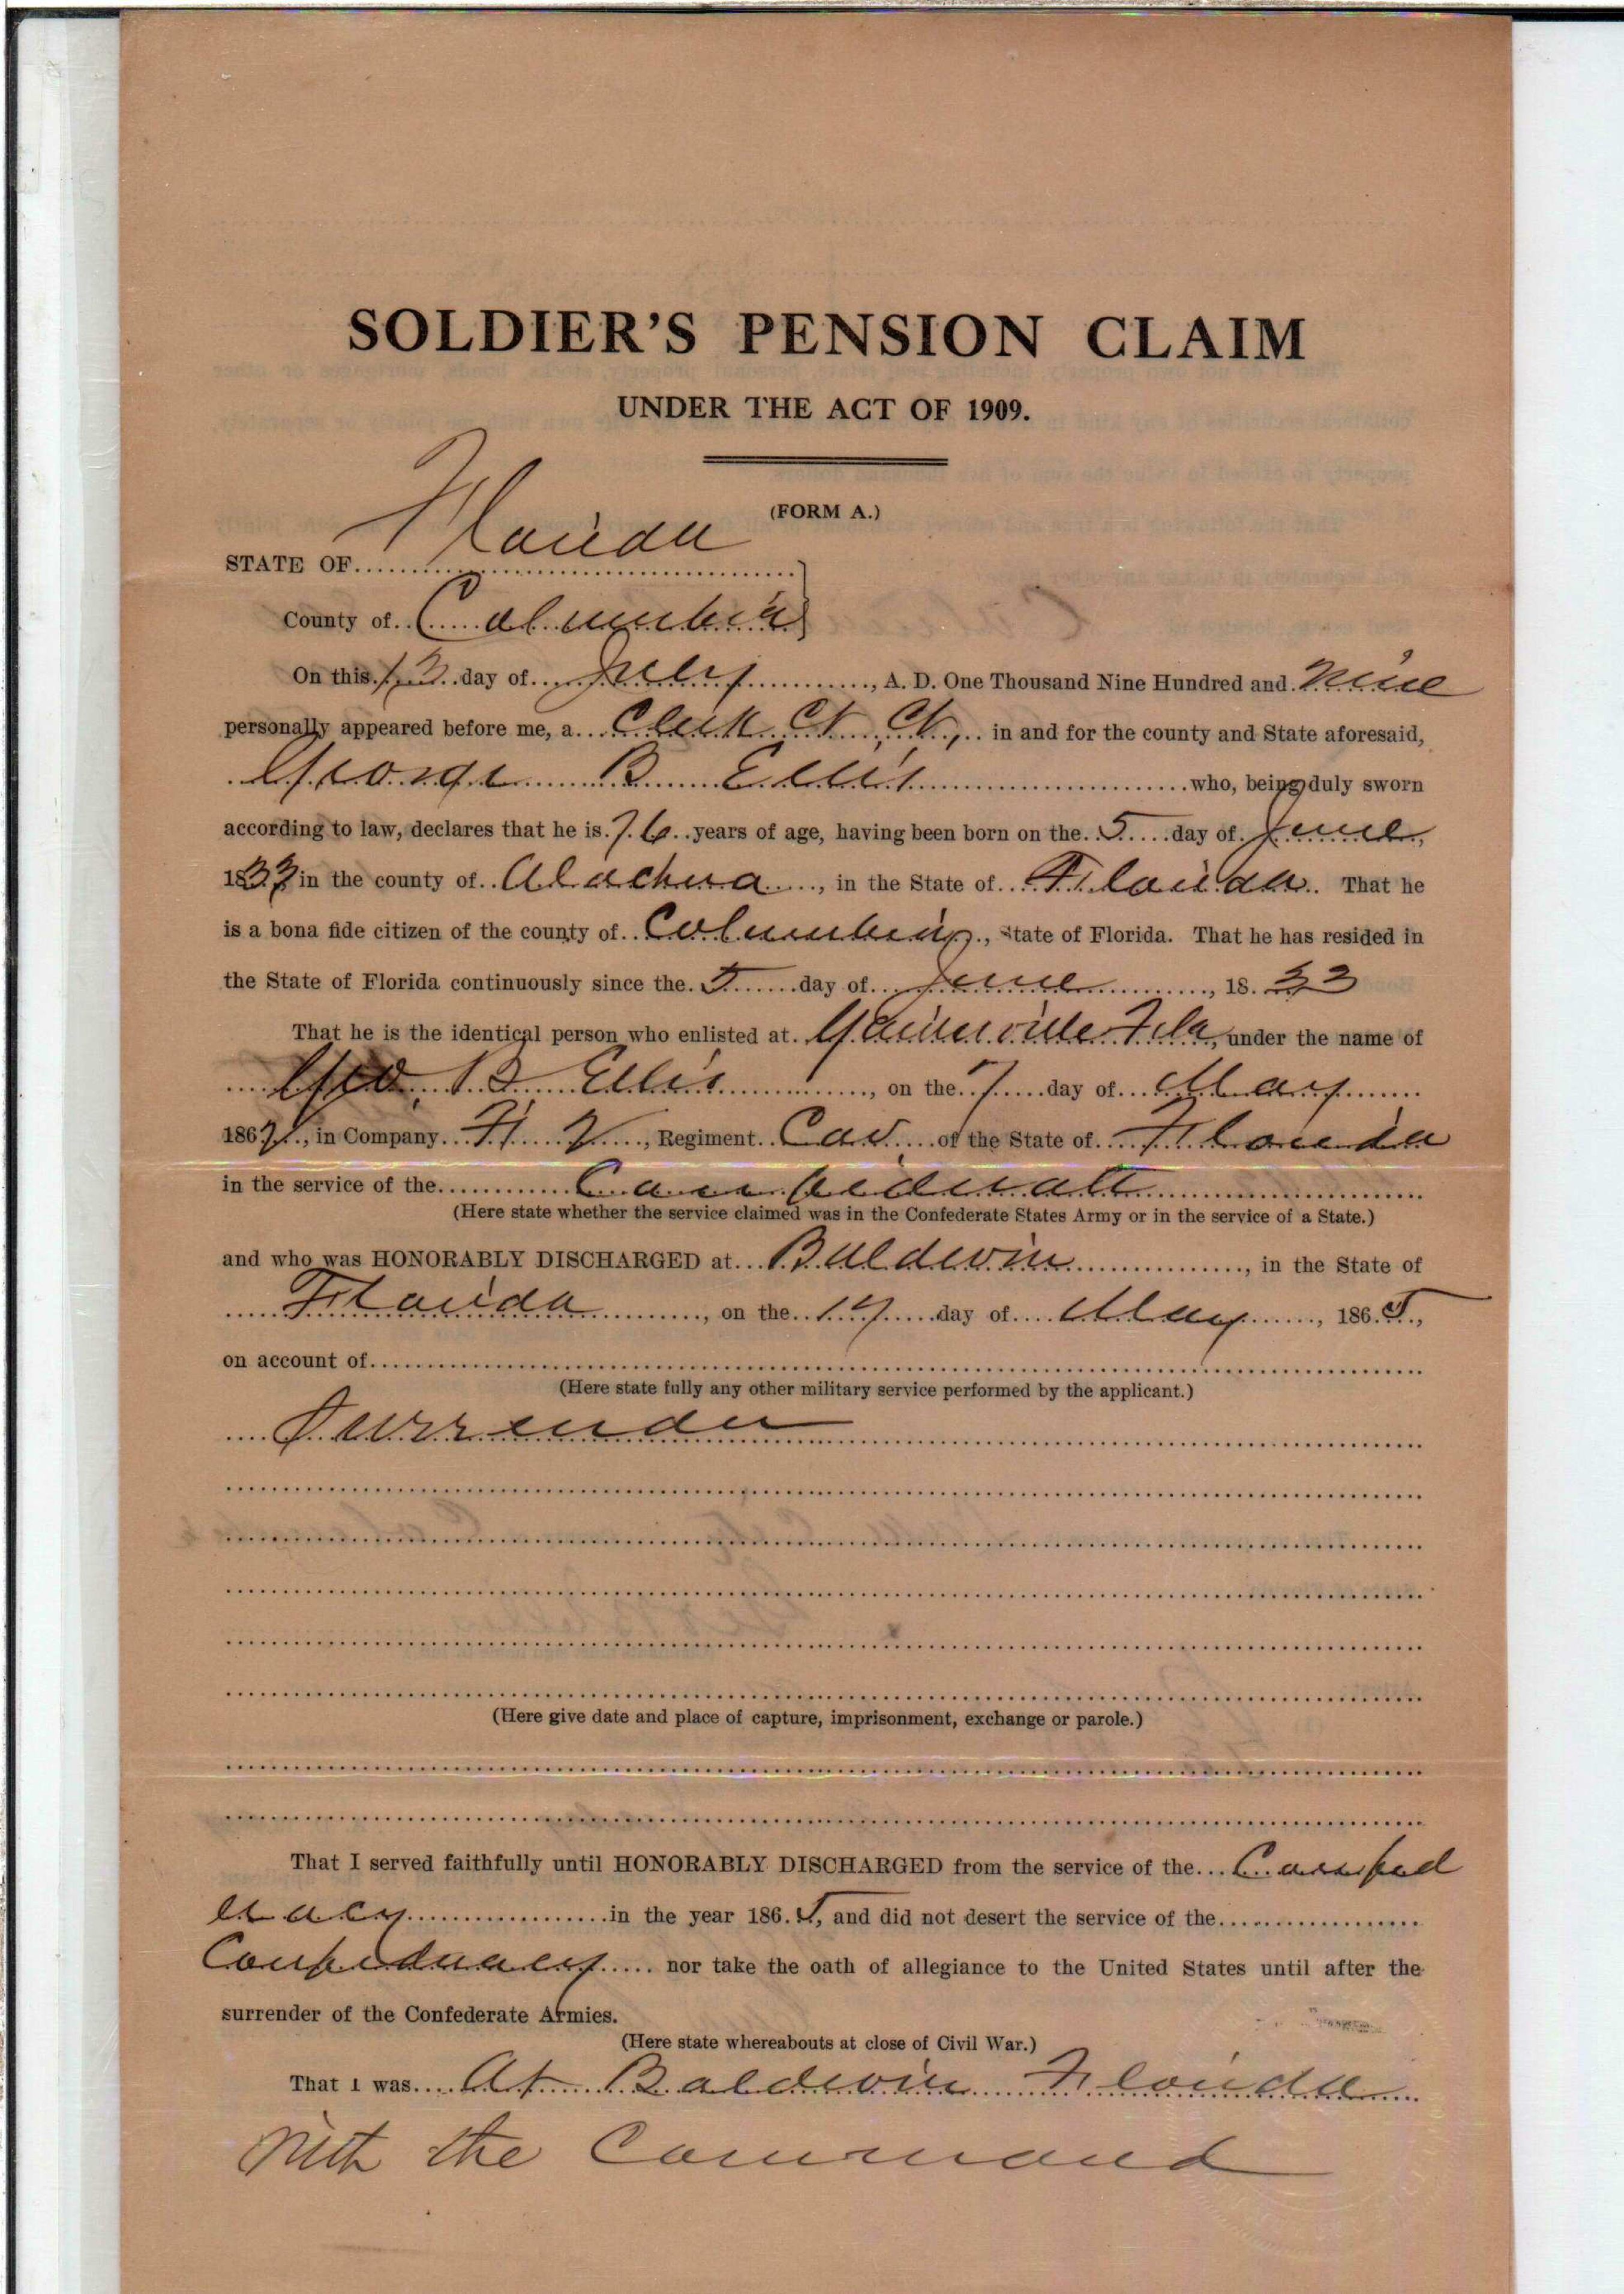 SOLDIER'S PENSION CLAIM
UNDER THE ACT OF 1909.
(FORM A.)
STATE OF Florida
County of Columbia
On this 13 day of July, A. D. One Thousand Nine Hundred and Nine
personally appeared before me, a Clerk Ct. Ct., in and for the county and State aforesaid,
George B Ellis who, being duly sworn
according to law, declares that he is 76 years of age, having been born on the 5 day of June,
1833 in the county of Alachua, in the State of Florida. That he
is a bona fide citizen of the county of Columbia, State of Florida. That he has resided in
the State of Florida continuously since the 5 day of June, 18 33
That he is the identical person who enlisted at Gainesville Fla, under the name of
Geo. B Ellis, on the 7 day of May
186, in Company F. 2, Regiment Cav of the State of Florida
in the service of the Confederate
(Here state whether the service claimed was in the Confederate States Army or in the service of a State.)
and who was HONORABLY DISCHARGED at Baldwin, in the State of
Florida, on the day of May, 1865,
on account of
(Here state fully any other military service performed by the applicant.)
Surrender
(Here give date and place of capture, imprisonment, exchange or parole.)
That I served faithfully until HONORABLY DISCHARGED from the service of the Confed
eracy in the year 1865, and did not desert the service of the
Confederacy nor take the oath of allegiance to the United States until after the
surrender of the Confederate Armies.
(Here state whereabouts at close of Civil War.)
That I was At Baldwin Florida
with the Command